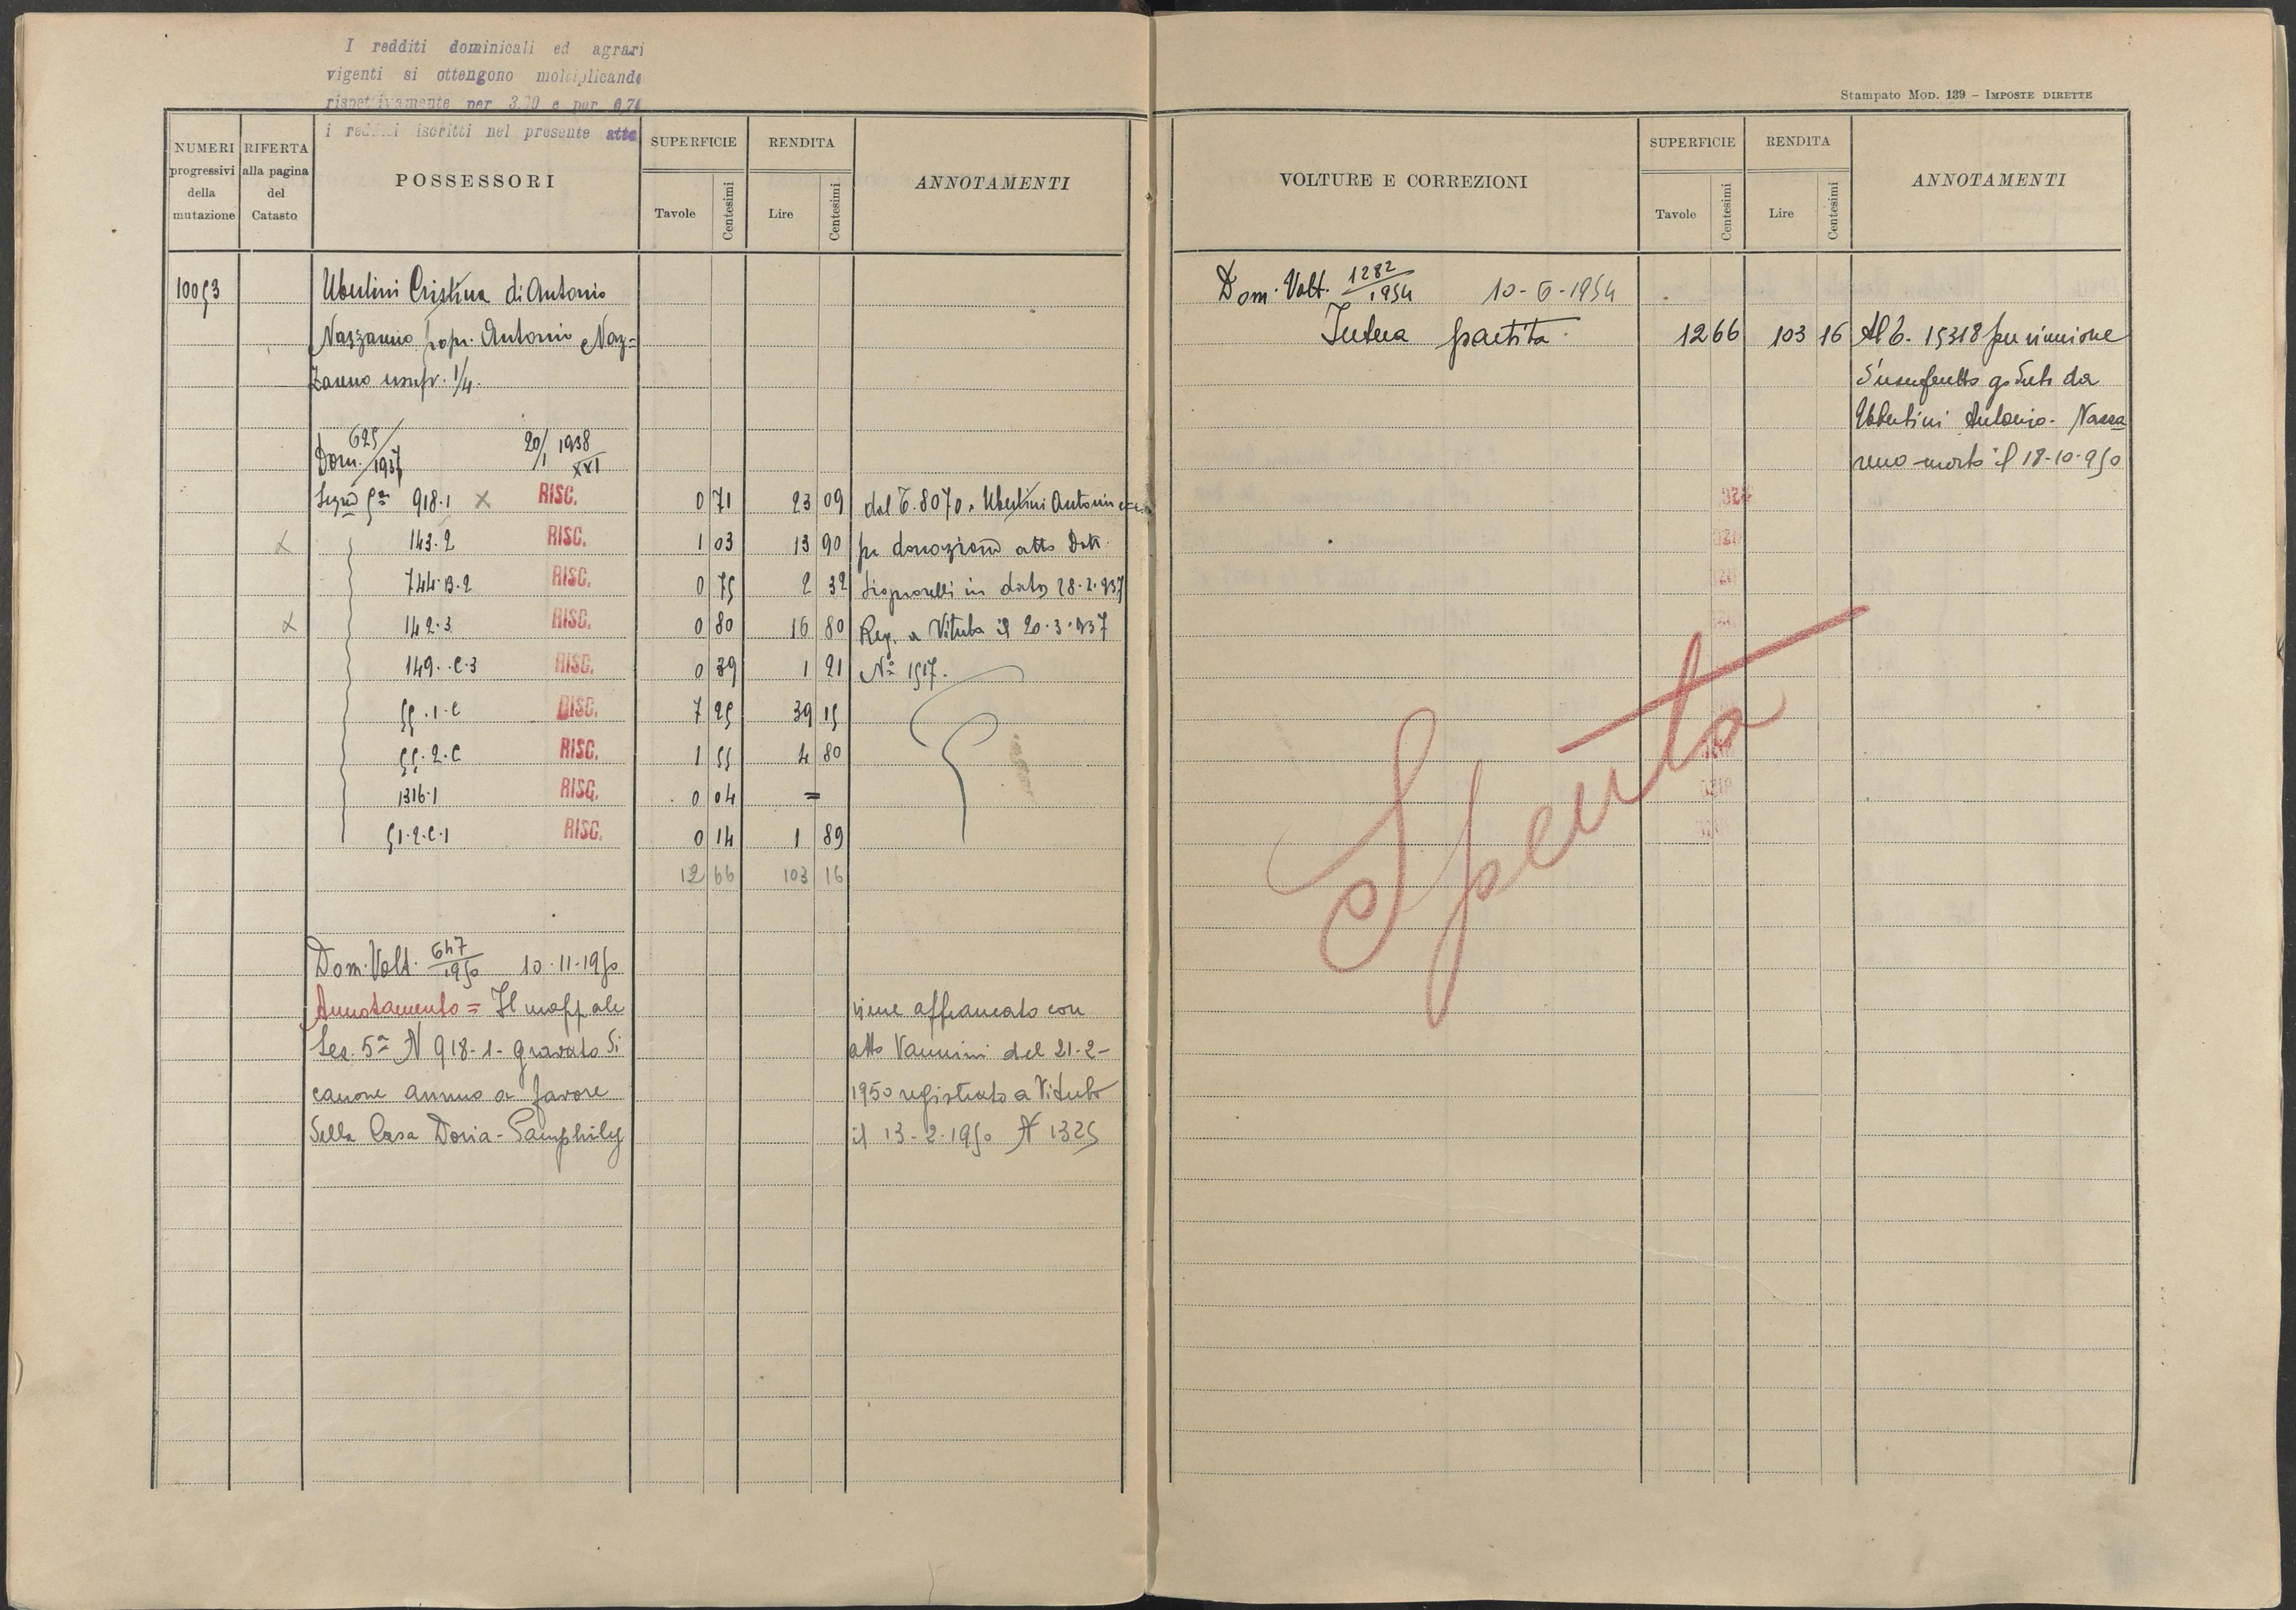 I redditi dominicali ed agrari
vigenti si ottengono moltiplicando
rispettivamente per 3.20 e per 0.70
i redditi iscritti nel presente atto
NUMERI progressivi della mutazione
RIFERTA alla pagina del Catasto
POSSESSORI
SUPERFICIE
Tavole Centesimi
RENDITA
Lire Centesimi
ANNOTAMENTI
10053 Ubertini Cristina di Antonio
Nazzareno propr. Antonio Naz=
zareno usufr. 1/4.
Dom. 625/1937 20/1 1938 XVI
Segnò 5ª 918.1 X RISC. 0 71 23 09 dal T. 8070. Ubertini Antonio
X 143.2 RISC. 1 03 13 90 per donazione atto Dott.
744.B.2 RISC. 0 75 2 32 Signorelli in data 28.2.937
X 142.3 RISC. 0 80 16 80 Reg. a Viterbo il 20.3.937
149.C.3 RISC. 0 39 1 21 Nº 1517.
55.1.C RISC. 7 25 39 15
55.2.C RISC. 1 55 4 80
1316.1 RISC. 0 04 =
51.2.C.1 RISC. 0 14 1 89
12 66 103 16
Dom. Volt. 647/1950 10-11-1950
Annotamento = Il mappale viene affrancato con
Sez. 5ª N 918-1- gravato di atto Vannini del 21-2-
canone annuo a favore 1950 registrato a Viterbo
della Casa Doria-Pamphily il 13-2-1950 N 1325
Stampato Mod. 139 - IMPOSTE DIRETTE
VOLTURE E CORREZIONI
SUPERFICIE
Tavole Centesimi
RENDITA
Lire Centesimi
ANNOTAMENTI
Dom. Volt. 1282/1954 10-6-1954
Intera partita 12 66 103 16 Al T. 15318 per riunione
d'usufrutto goduto da
Ubertini Antonio-Nazza
reno morto il 18-10-950
Spenta